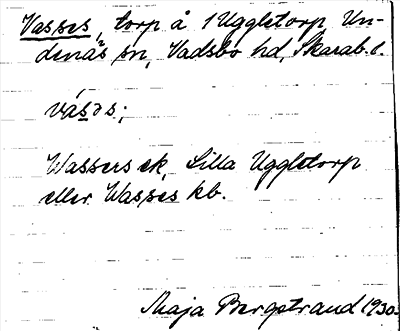 Vasses, torp å 1 Uggletorp Un-
denäs sn, Vadsbo hd, Skarab. l.
vásəs;
Wassers ek, Lilla Uggletorp
eller Wasses kb.
Maja Bergstrand 1930.